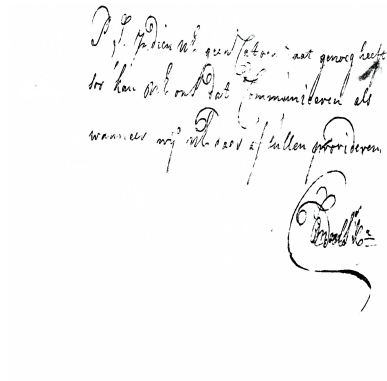 P.S. Indien Ul: geen Catoen nat genoeg heeft
soo kan Ul: ons dat Communiceren als
wanneer wij Ul: daar af sullen provideren